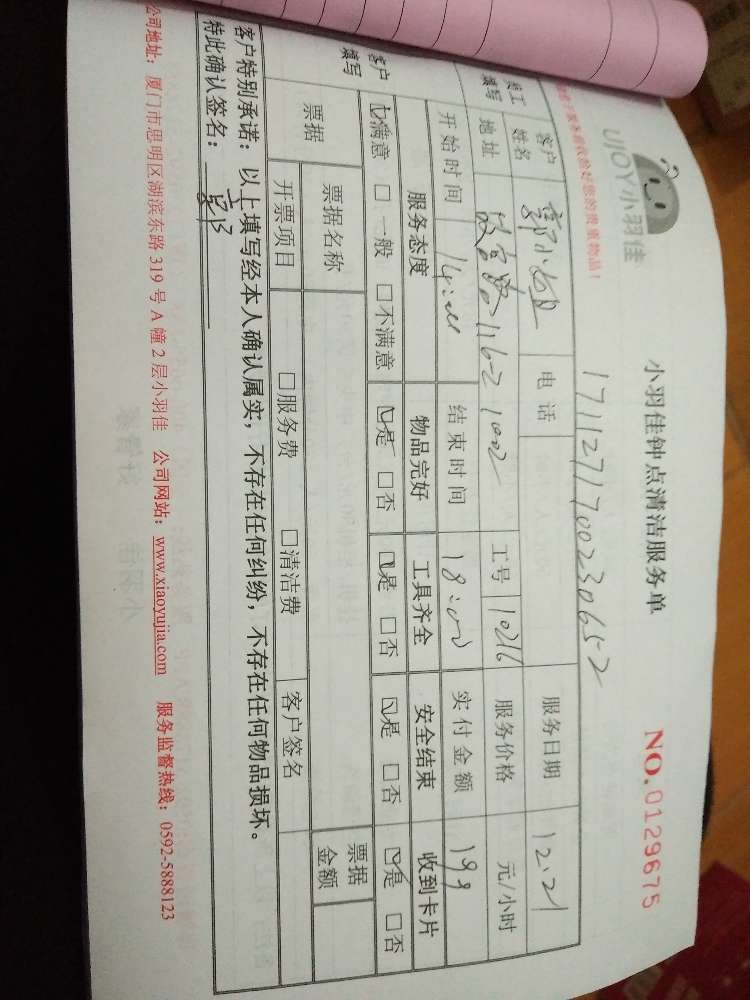 UJOY小羽佳
小羽佳钟点清洁服务单
NO.0129675
贵重物品！
1711271700230652
客户姓名 郭小姐 电话 服务日期 12.21
员工填写 地址 116-2 1002 工号 10216 服务价格 元/小时
开始时间 14:00 结束时间 18:00 实付金额 199
客户填写 服务态度 物品完好 工具齐全 安全结束 收到卡片
☑满意 □一般 □不满意 ☑是 □否 ☑是 □否 ☑是 □否 ☑是 □否
票据 票据名称 票据金额
开票项目 □服务费 □清洁费 客户签名
客户特别承诺：以上填写经本人确认属实，不存在任何纠纷，不存在任何物品损坏。
特此确认签名：
公司地址：厦门市思明区湖滨东路319号A幢2层小羽佳 公司网站：www.xiaoyujia.com 服务监督热线：0592-5888123